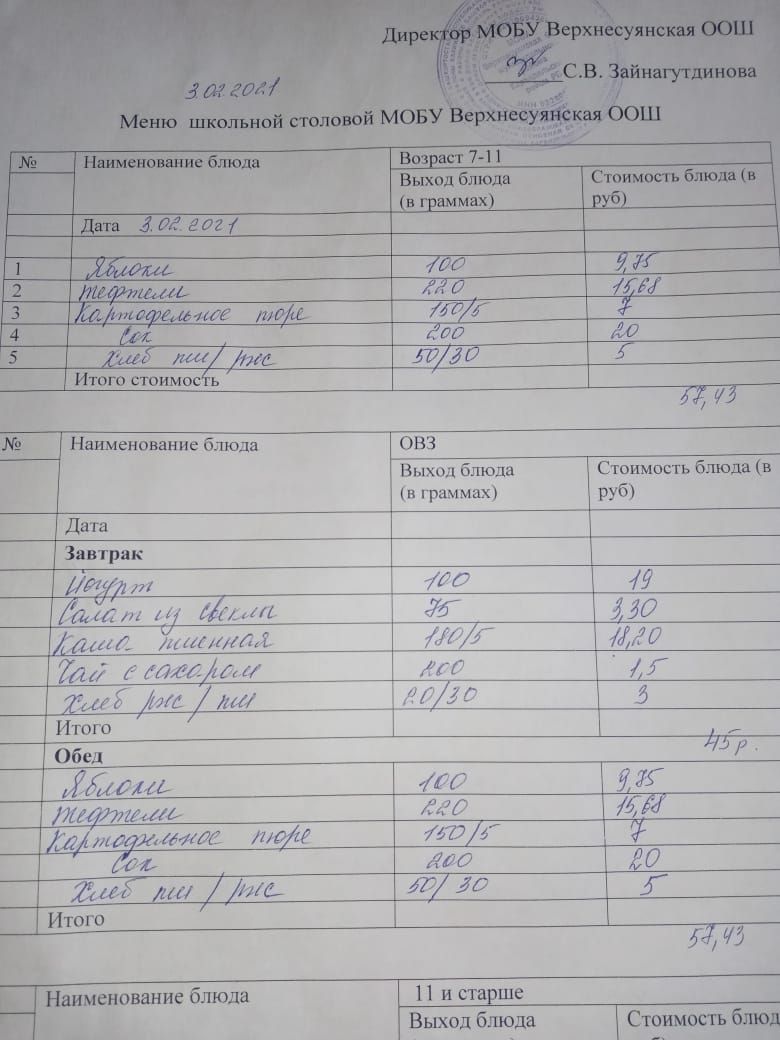 Директор МОБУ Верхнесуянская ООШ
С.В. Зайнагутдинова
3.02.2021
Меню школьной столовой МОБУ Верхнесуянская ООШ
№ Наименование блюда Возраст 7-11
Выход блюда (в граммах) Стоимость блюда (в руб)
Дата 3.02.2021
1 Яблоки 100 9,75
2 тефтели 220 15,68
3 Картофельное пюре 150/5 7
4 Сок 200 20
5 Хлеб пш/ржс 50/30 5
Итого стоимость
57,43
№ Наименование блюда ОВЗ
Выход блюда (в граммах) Стоимость блюда (в руб)
Дата
Завтрак
Йогурт 100 19
Салат из свеклы 75 3,30
Каша пшенная 180/5 18,20
Чай с сахаром 200 1,5
Хлеб ржс/пш 20/30 3
Итого
45р.
Обед
Яблоки 100 9,75
тефтели 220 15,68
Картофельное пюре 150/5 7
Сок 200 20
Хлеб пш/ржс 50/30 5
Итого
57,43
Наименование блюда 11 и старше
Выход блюда Стоимость блюд